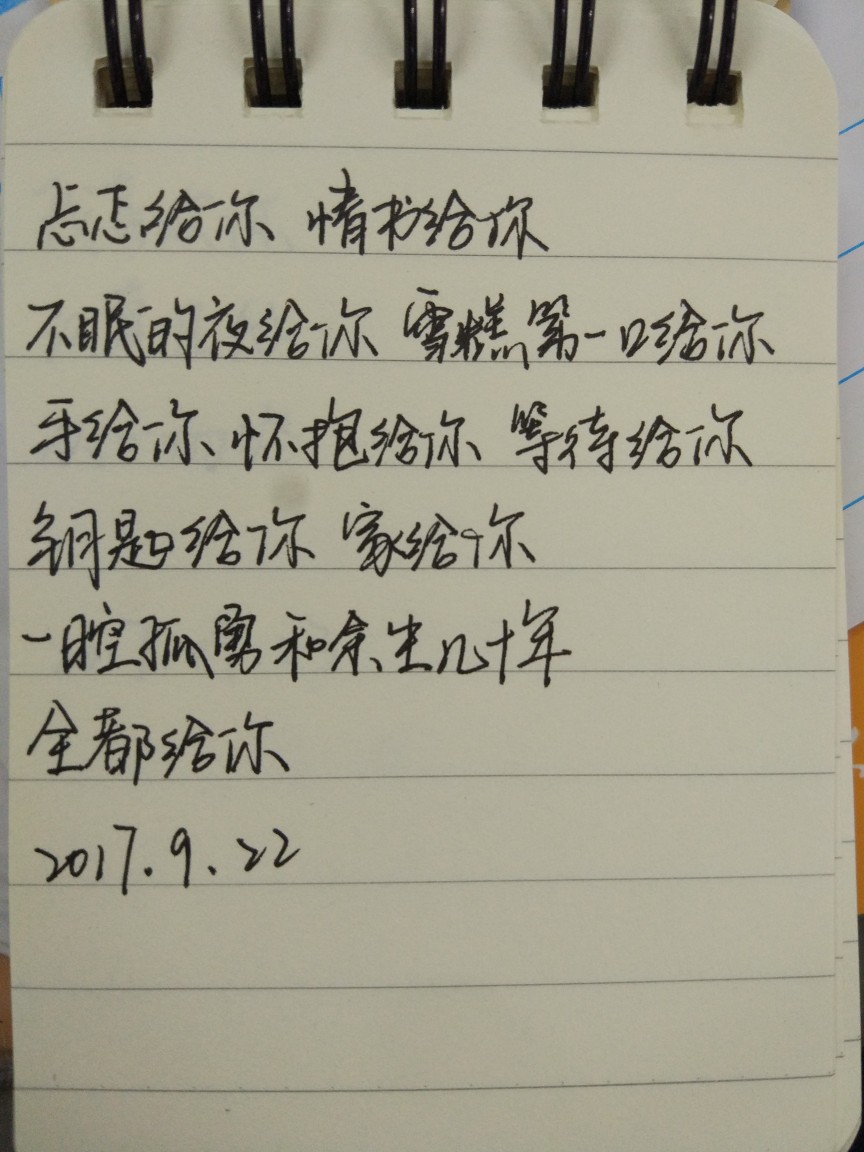 忐忑给你 情书给你
不眠的夜给你 雪糕第一口给你
手给你 怀抱给你 等待给你
钥匙给你 家给你
一腔孤勇和余生几十年
全都给你
2017.9.22